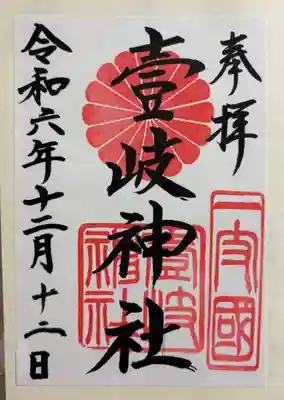 奉拝
一支國
壹岐神社
壹岐神社
令和六年十二月十二日